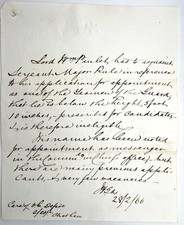 Lord Wm Paulet, has to acquaint
Sergeant Major Rule in reference
to his application for appointment
as one of the Yeomen of the Guard
that he is below the height, 5 foot
10 inches, prescribed for Candidates,
& is therefore ineligible.
His name has been noted
for appointment as messenger
in the Comm in Chief's office, but
there are many previous applic
cants, & very few vacancies.
28/2/66